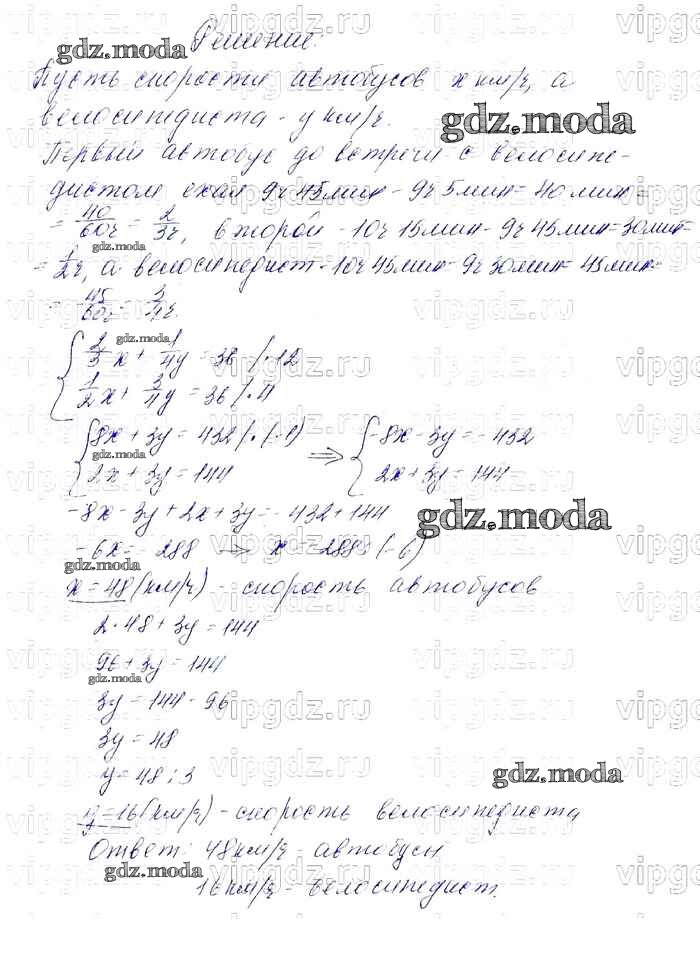 Решение:
gdz.moda
Пусть скорости автобусов x км/ч, а
велосипедиста - y км/ч.
gdz.moda
Первый автобус до встречи с велосипе-
дистом ехал 9ч 45мин - 9ч 5мин = 40 мин =
= 40/60ч = 2/3ч, второй - 10ч 15мин - 9ч 45мин = 30мин =
gdz.moda
= 1/2ч, а велосипедист - 10ч 45мин - 9ч 30мин = 45мин =
= 45/60ч = 3/4ч.
gdz.moda
2/3x + 1/4y = 36 /·12
1/2x + 3/4y = 36 /·4
8x + 3y = 432 /·(-1) => -8x - 3y = -432
2x + 3y = 144 2x + 3y = 144
-8x - 3y + 2x + 3y = -432 + 144
gdz.moda
-6x = -288 -> x = -288 : (-6)
gdz.moda
x = 48 (км/ч) - скорость автобусов
2·48 + 3y = 144
96 + 3y = 144
gdz.moda
3y = 144 - 96
3y = 48
y = 48 : 3
gdz.moda
y = 16 (км/ч) - скорость велосипедиста
Ответ: 48км/ч - автобусы
gdz.moda
16 км/ч - велосипедист.
vipgdz.ru